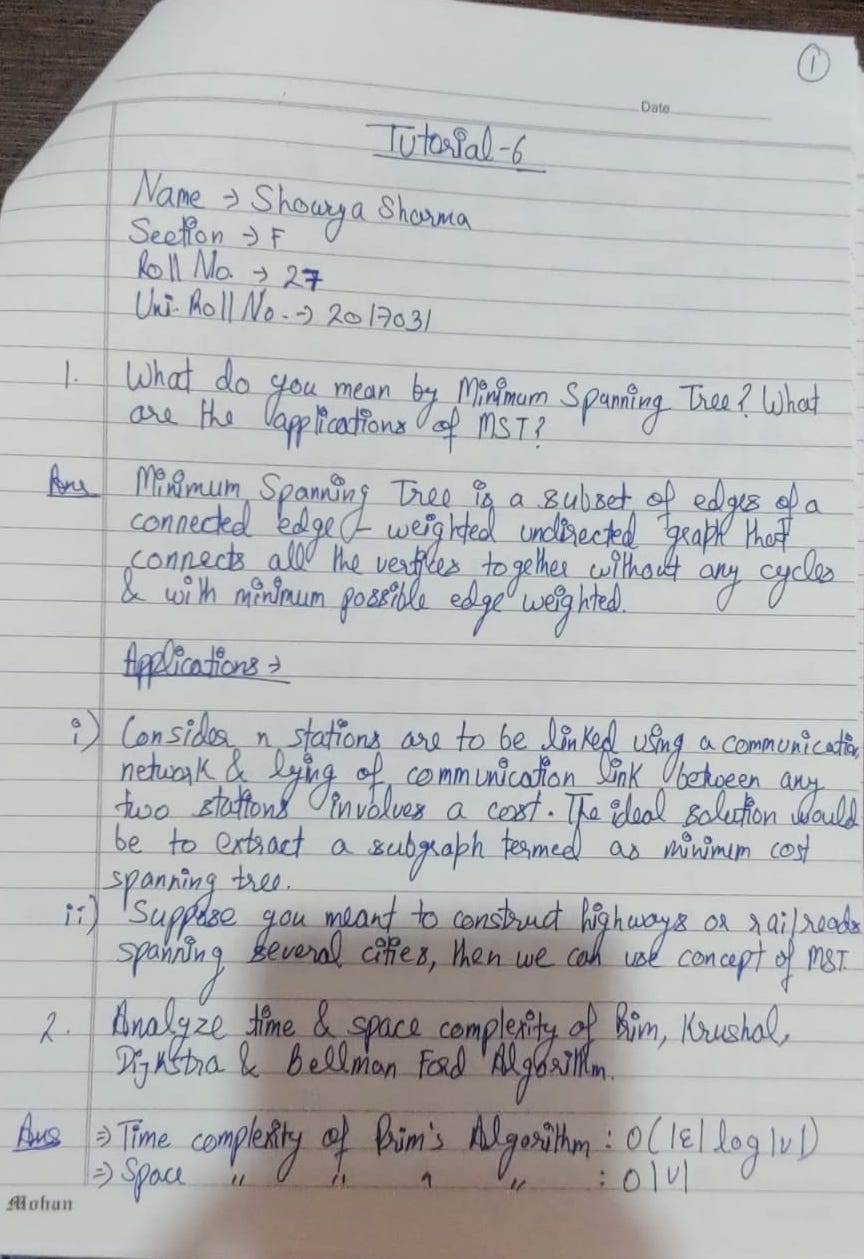 1
Date
Tutorial-6
Name → Shourya Sharma
Section → F
Roll No. → 27
Uni. Roll No. → 2017031
1. What do you mean by Minimum Spanning Tree? What
are the applications of MST?
Ans Minimum Spanning Tree is a subset of edges of a
connected edge - weighted undirected graph that
connects all the vertices together without any cycles
& with minimum possible edge weighted.
Applications →
i) Consider n stations are to be linked using a communication
network & lying of communication link between any
two stations involves a cost. The ideal solution would
be to extract a subgraph termed as minimum cost
spanning tree.
ii) Suppose you meant to construct highways or railroads
spanning several cities, then we can use concept of MST
2. Analyze time & space complexity of Prim, Krushal,
Dijkstra & Bellman Ford Algorithm.
Ans ⇒ Time complexity of Prim's Algorithm : O(|E| log |V|)
⇒ Space " " " " : O|V|
Mohan